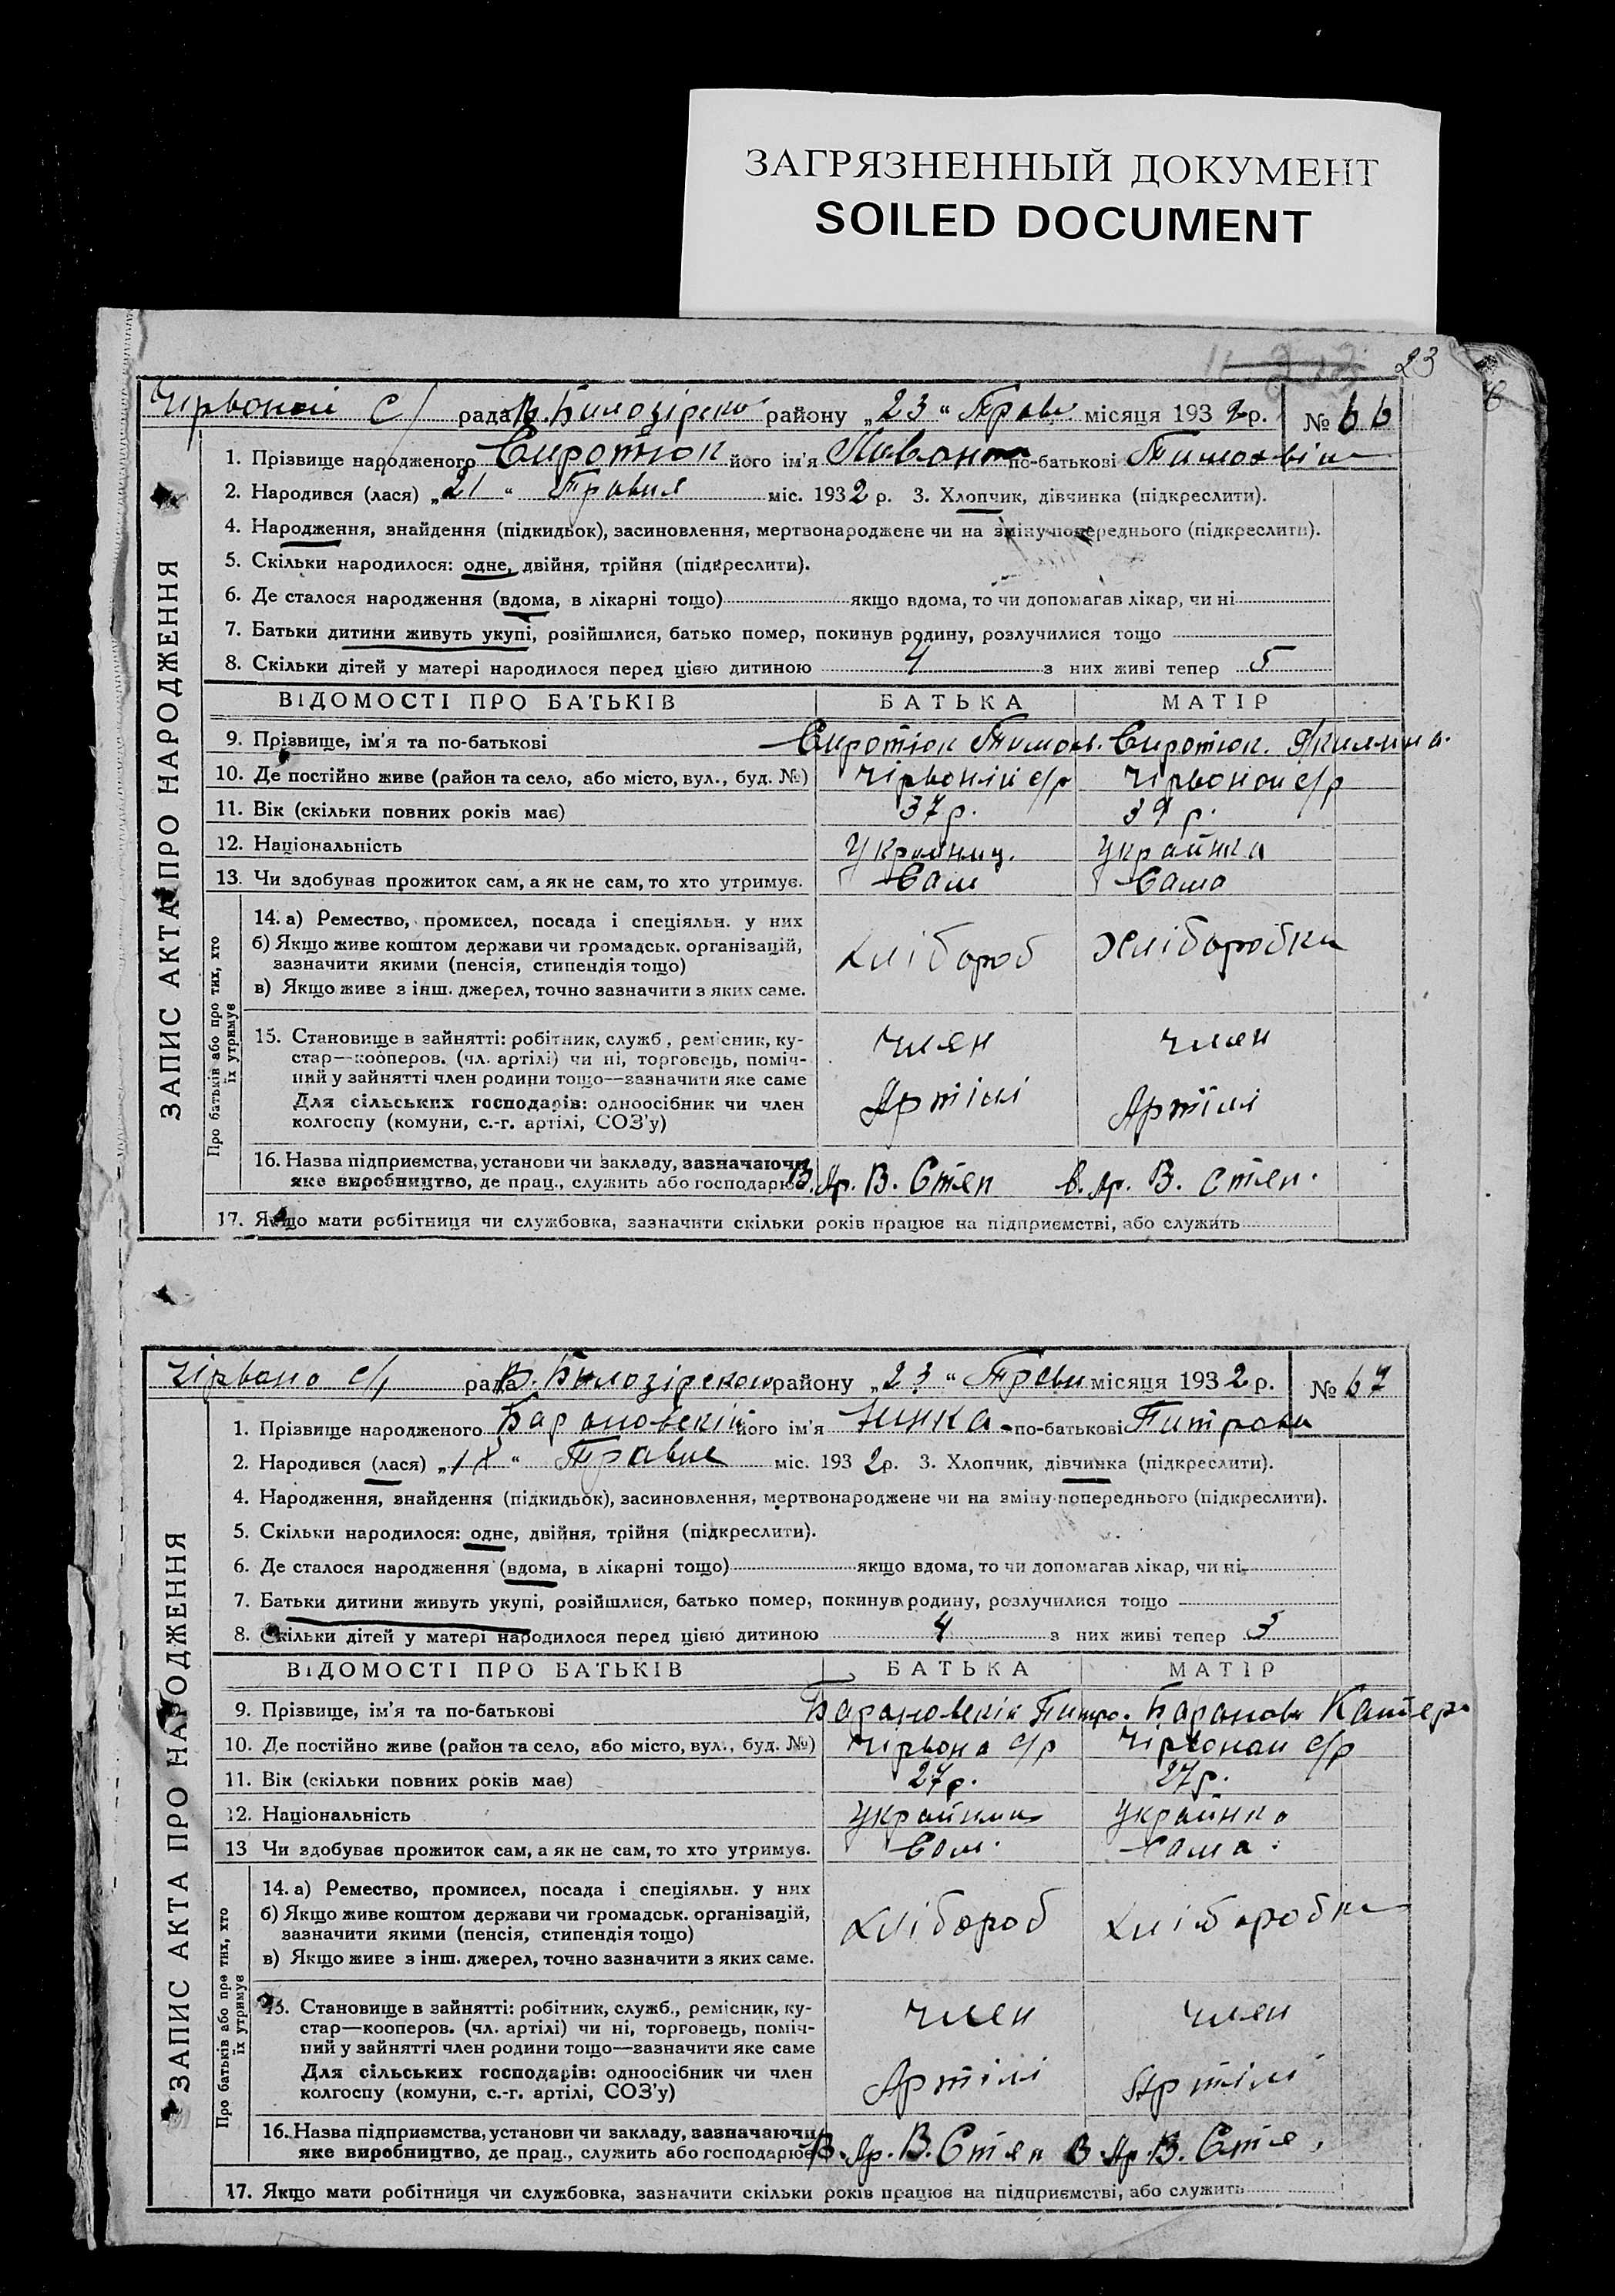 ЗАГРЯЗНЕННЫЙ ДОКУМЕНТ
SOILED DOCUMENT
23
с/ рада В. Билозірско району „23“ Трав місяця 1932р. № 66
1. Прізвище народженого Сиротюк його ім'я по-батькові
2. Народився (лася) „21“ Травня міс. 1932 р. 3. Хлопчик, дівчинка (підкреслити).
4. Народження, знайдення (підкидьок), засиновлення, мертвонароджене чи на зміну попереднього (підкреслити).
5. Скільки народилося: одне, двійня, трійня (підкреслити).
6. Де сталося народження (вдома, в лікарні тощо) якщо вдома, то чи допомагав лікар, чи ні
7. Батьки дитини живуть укупі, розійшлися, батько помер, покинув родину, розлучилися тощо
8. Скільки дітей у матері народилося перед цією дитиною 4 з них живі тепер 5
ВІДОМОСТІ ПРО БАТЬКІВ БАТЬКА МАТІР
9. Прізвище, ім'я та по-батькові Сиротюк Тимом. Сиротюк. Якилина.
10. Де постійно живе (район та село, або місто, вул., буд. №) Чірвоній с/р Чірвоной с/р
11. Вік (скільки повних років має) 37р. 39 р.
12. Національність Украйниц. Украйнка
13. Чи здобував прожиток сам, а як не сам, то хто утримує. Сам Сама
14. а) Ремество, промисел, посада і спеціяльн. у них
б) Якщо живе коштом держави чи громадськ. організацій, зазначити якими (пенсія, стипендія тощо) хлібороб хліборобка
в) Якщо живе з інш. джерел, точно зазначити з яких саме.
15. Становище в зайнятті: робітник, служб., ремісник, ку-
стар—кооперов. (чл. артілі) чи ні, торговець, поміч- член член
ний у зайнятті член родини тощо—зазначити яке саме
Для сільських господарів: одноосібник чи член Артілі Артілі
колгоспу (комуни, с.-г. артілі, СОЗ'у)
16. Назва підприємства, установи чи закладу, зазначаючи
яке виробництво, де прац., служить або господарює В. Ар. В. Стяп В. Ар. В. Стяп.
17. Якщо мати робітниця чи службовка, зазначити скільки років працює на підприємстві, або служить
ЗАПИС АКТА ПРО НАРОДЖЕННЯ
Про батьків або про тих, хто їх утримує
Чірвоно с/ рада В. Билозірской району „23“ Трави місяця 1932р. № 67
1. Прізвище народженого Барановскій його ім'я Нинка по-батькові Питрови
2. Народився (лася) міс. 1932р. 3. Хлопчик, дівчинка (підкреслити).
4. Народження, знайдення (підкидьок), засиновлення, мертвонароджене чи на зміну попереднього (підкреслити).
5. Скільки народилося: одне, двійня, трійня (підкреслити).
6. Де сталося народження (вдома, в лікарні тощо) якщо вдома, то чи допомагав лікар, чи ні
7. Батьки дитини живуть укупі, розійшлися, батько помер, покинув родину, розлучилися тощо
8. Скільки дітей у матері народилося перед цією дитиною 4 з них живі тепер 3
ВІДОМОСТІ ПРО БАТЬКІВ БАТЬКА МАТІР
9. Прізвище, ім'я та по-батькові Барановскій Питро. Баранов Катер
10. Де постійно живе (район та село, або місто, вул., буд. №) Чірвоно с/р Чірвоной с/р
11. Вік (скільки повних років має) 27р. 27р.
12. Національність Украйниц Украйнка
13 Чи здобував прожиток сам, а як не сам, то хто утримує. Сам. Сама.
14. а) Ремество, промисел, посада і спеціяльн. у них
б) Якщо живе коштом держави чи громадськ. організацій, зазначити якими (пенсія, стипендія тощо) хлібороб хліборобка
в) Якщо живе з інш. джерел, точно зазначити з яких саме.
15. Становище в зайнятті: робітник, служб., ремісник, ку-
стар—кооперов. (чл. артілі) чи ні, торговець, поміч- член член
ний у зайнятті член родини тощо—зазначити яке саме
Для сільських господарів: одноосібник чи член Артілі Артілі
колгоспу (комуни, с.-г. артілі, СОЗ'у)
16. Назва підприємства, установи чи закладу, зазначаючи
яке виробництво, де прац., служить або господарює В. Ар. В. Стяп В. Ар. В. Стя.
17. Якщо мати робітниця чи службовка, зазначити скільки років працює на підприємстві, або служить
ЗАПИС АКТА ПРО НАРОДЖЕННЯ
Про батьків або про тих, хто їх утримує